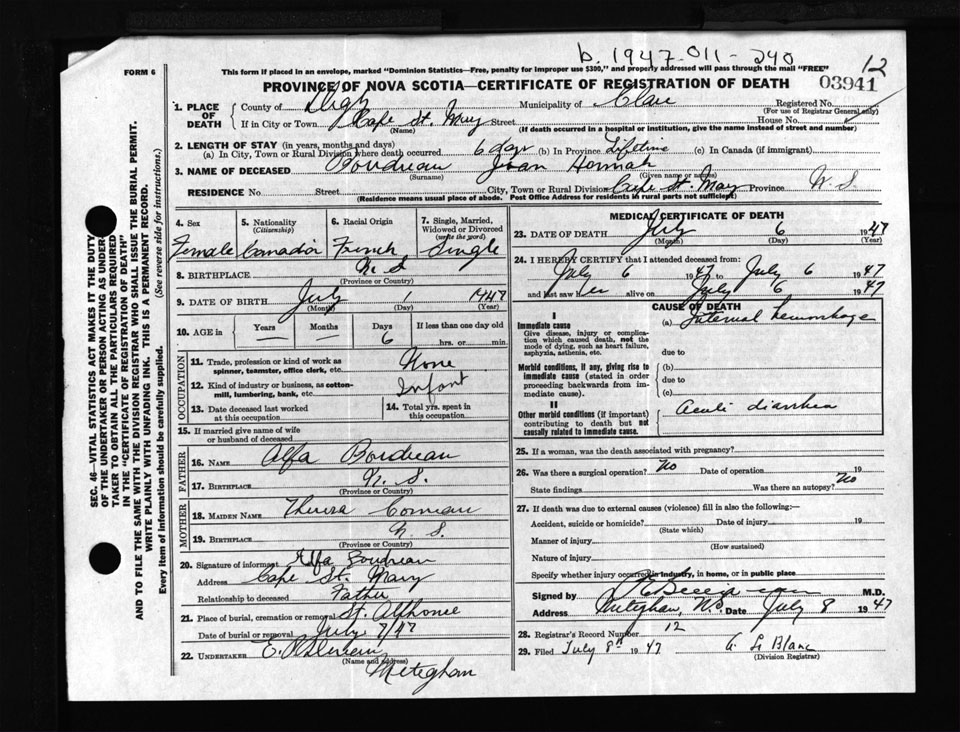 b. 1947-011-240
12
FORM 6
This form if placed in an envelope, marked "Dominion Statistics—Free, penalty for improper use $300," and properly addressed will pass through the mail "FREE"
PROVINCE OF NOVA SCOTIA—CERTIFICATE OF REGISTRATION OF DEATH
03941
1. PLACE OF DEATH
County of Digby Municipality of Clare Registered No.
(For use of Registrar General only)
If in City or Town Cape St. Mary Street House No.
(Name) (If death occurred in a hospital or institution, give the name instead of street and number)
2. LENGTH OF STAY (in years, months and days)
(a) In City, Town or Rural Division where death occurred 6 days (b) In Province Lifetime (c) In Canada (if immigrant)
3. NAME OF DECEASED Boudreau Jean Hannah
(Surname) (Given name or names)
RESIDENCE No. Street City, Town or Rural Division Cape St. Mary Province N.S.
(Residence means usual place of abode. Post Office Address for residents in rural parts not sufficient)
4. Sex
Female
5. Nationality (Citizenship)
Canadian
6. Racial Origin
French
7. Single, Married, Widowed or Divorced (write the word)
Single
8. BIRTHPLACE N.S
(Province or Country)
9. DATE OF BIRTH July 1 1947
(Month) (Day) (Year)
10. AGE in Years Months Days If less than one day old
— — 6 hrs. or min.
OCCUPATION
11. Trade, profession or kind of work as spinner, teamster, office clerk, etc. None
12. Kind of industry or business, as cotton-mill, lumbering, bank, etc. Infant
13. Date deceased last worked at this occupation
14. Total yrs. spent in this occupation
15. If married give name of wife or husband of deceased
FATHER
16. NAME Alfa Boudreau
17. BIRTHPLACE N.S.
(Province or Country)
MOTHER
18. MAIDEN NAME Theresa Comeau
19. BIRTHPLACE N S.
(Province or Country)
20. Signature of informant Alfa Boudreau
Address Cape St. Mary
Relationship to deceased Father
21. Place of burial, cremation or removal St. Alphonse
Date of burial or removal July 7/47
22. UNDERTAKER
(Name and address)
Meteghan
MEDICAL CERTIFICATE OF DEATH
23. DATE OF DEATH July 6 1947
(Month) (Day) (Year)
24. I HEREBY CERTIFY that I attended deceased from:
July 6 1947 to July 6 1947
and last saw her alive on July 6 1947
CAUSE OF DEATH
I
Immediate cause
Give disease, injury or complication which caused death, not the mode of dying, such as heart failure, asphyxia, asthenia, etc.
(a) Internal hemorrhage
due to
Morbid conditions, if any, giving rise to immediate cause (stated in order proceeding backwards from immediate cause).
(b)
due to
(c)
II
Other morbid conditions (if important) contributing to death but not causally related to immediate cause.
Acute diarrhea
25. If a woman, was the death associated with pregnancy?
26. Was there a surgical operation? No Date of operation 19
State findings Was there an autopsy? No
27. If death was due to external causes (violence) fill in also the following:—
Accident, suicide or homicide? Date of injury 19
(State which)
Manner of injury
(How sustained)
Nature of injury
Specify whether injury occurred in industry, in home, or in public place
Signed by M.D.
Address Meteghan, NS Date July 8 1947
28. Registrar's Record Number 12
29. Filed July 8th 1947 A. Le Blanc
(Division Registrar)
SEC. 46—VITAL STATISTICS ACT MAKES IT THE DUTY
OF THE UNDERTAKER OR PERSON ACTING AS UNDER-
TAKER TO OBTAIN ALL THE PARTICULARS REQUIRED
IN THE "CERTIFICATE OF REGISTRATION OF DEATH"
AND TO FILE THE SAME WITH THE DIVISION REGISTRAR WHO SHALL ISSUE THE BURIAL PERMIT.
WRITE PLAINLY WITH UNFADING INK. THIS IS A PERMANENT RECORD.
Every item of information should be carefully supplied. (See reverse side for instructions.)